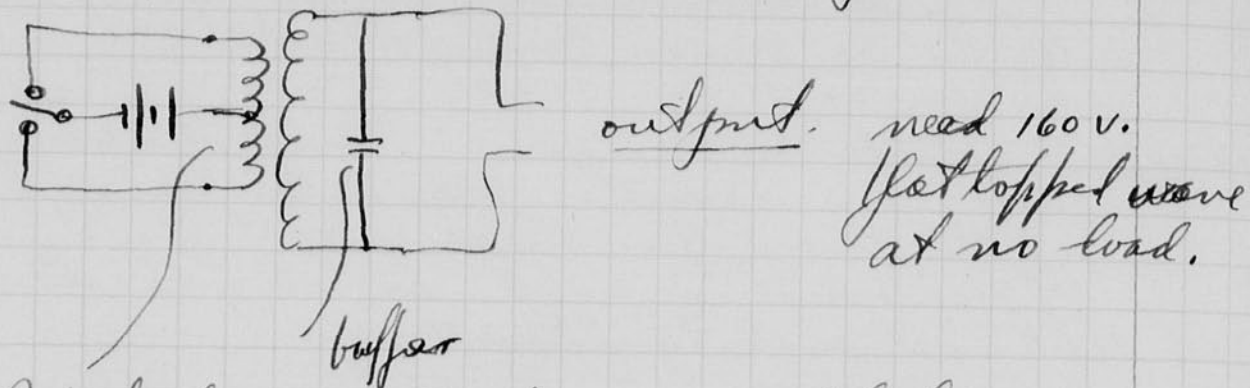 output. need 160 v.
flat topped wave
at no load.
buffer